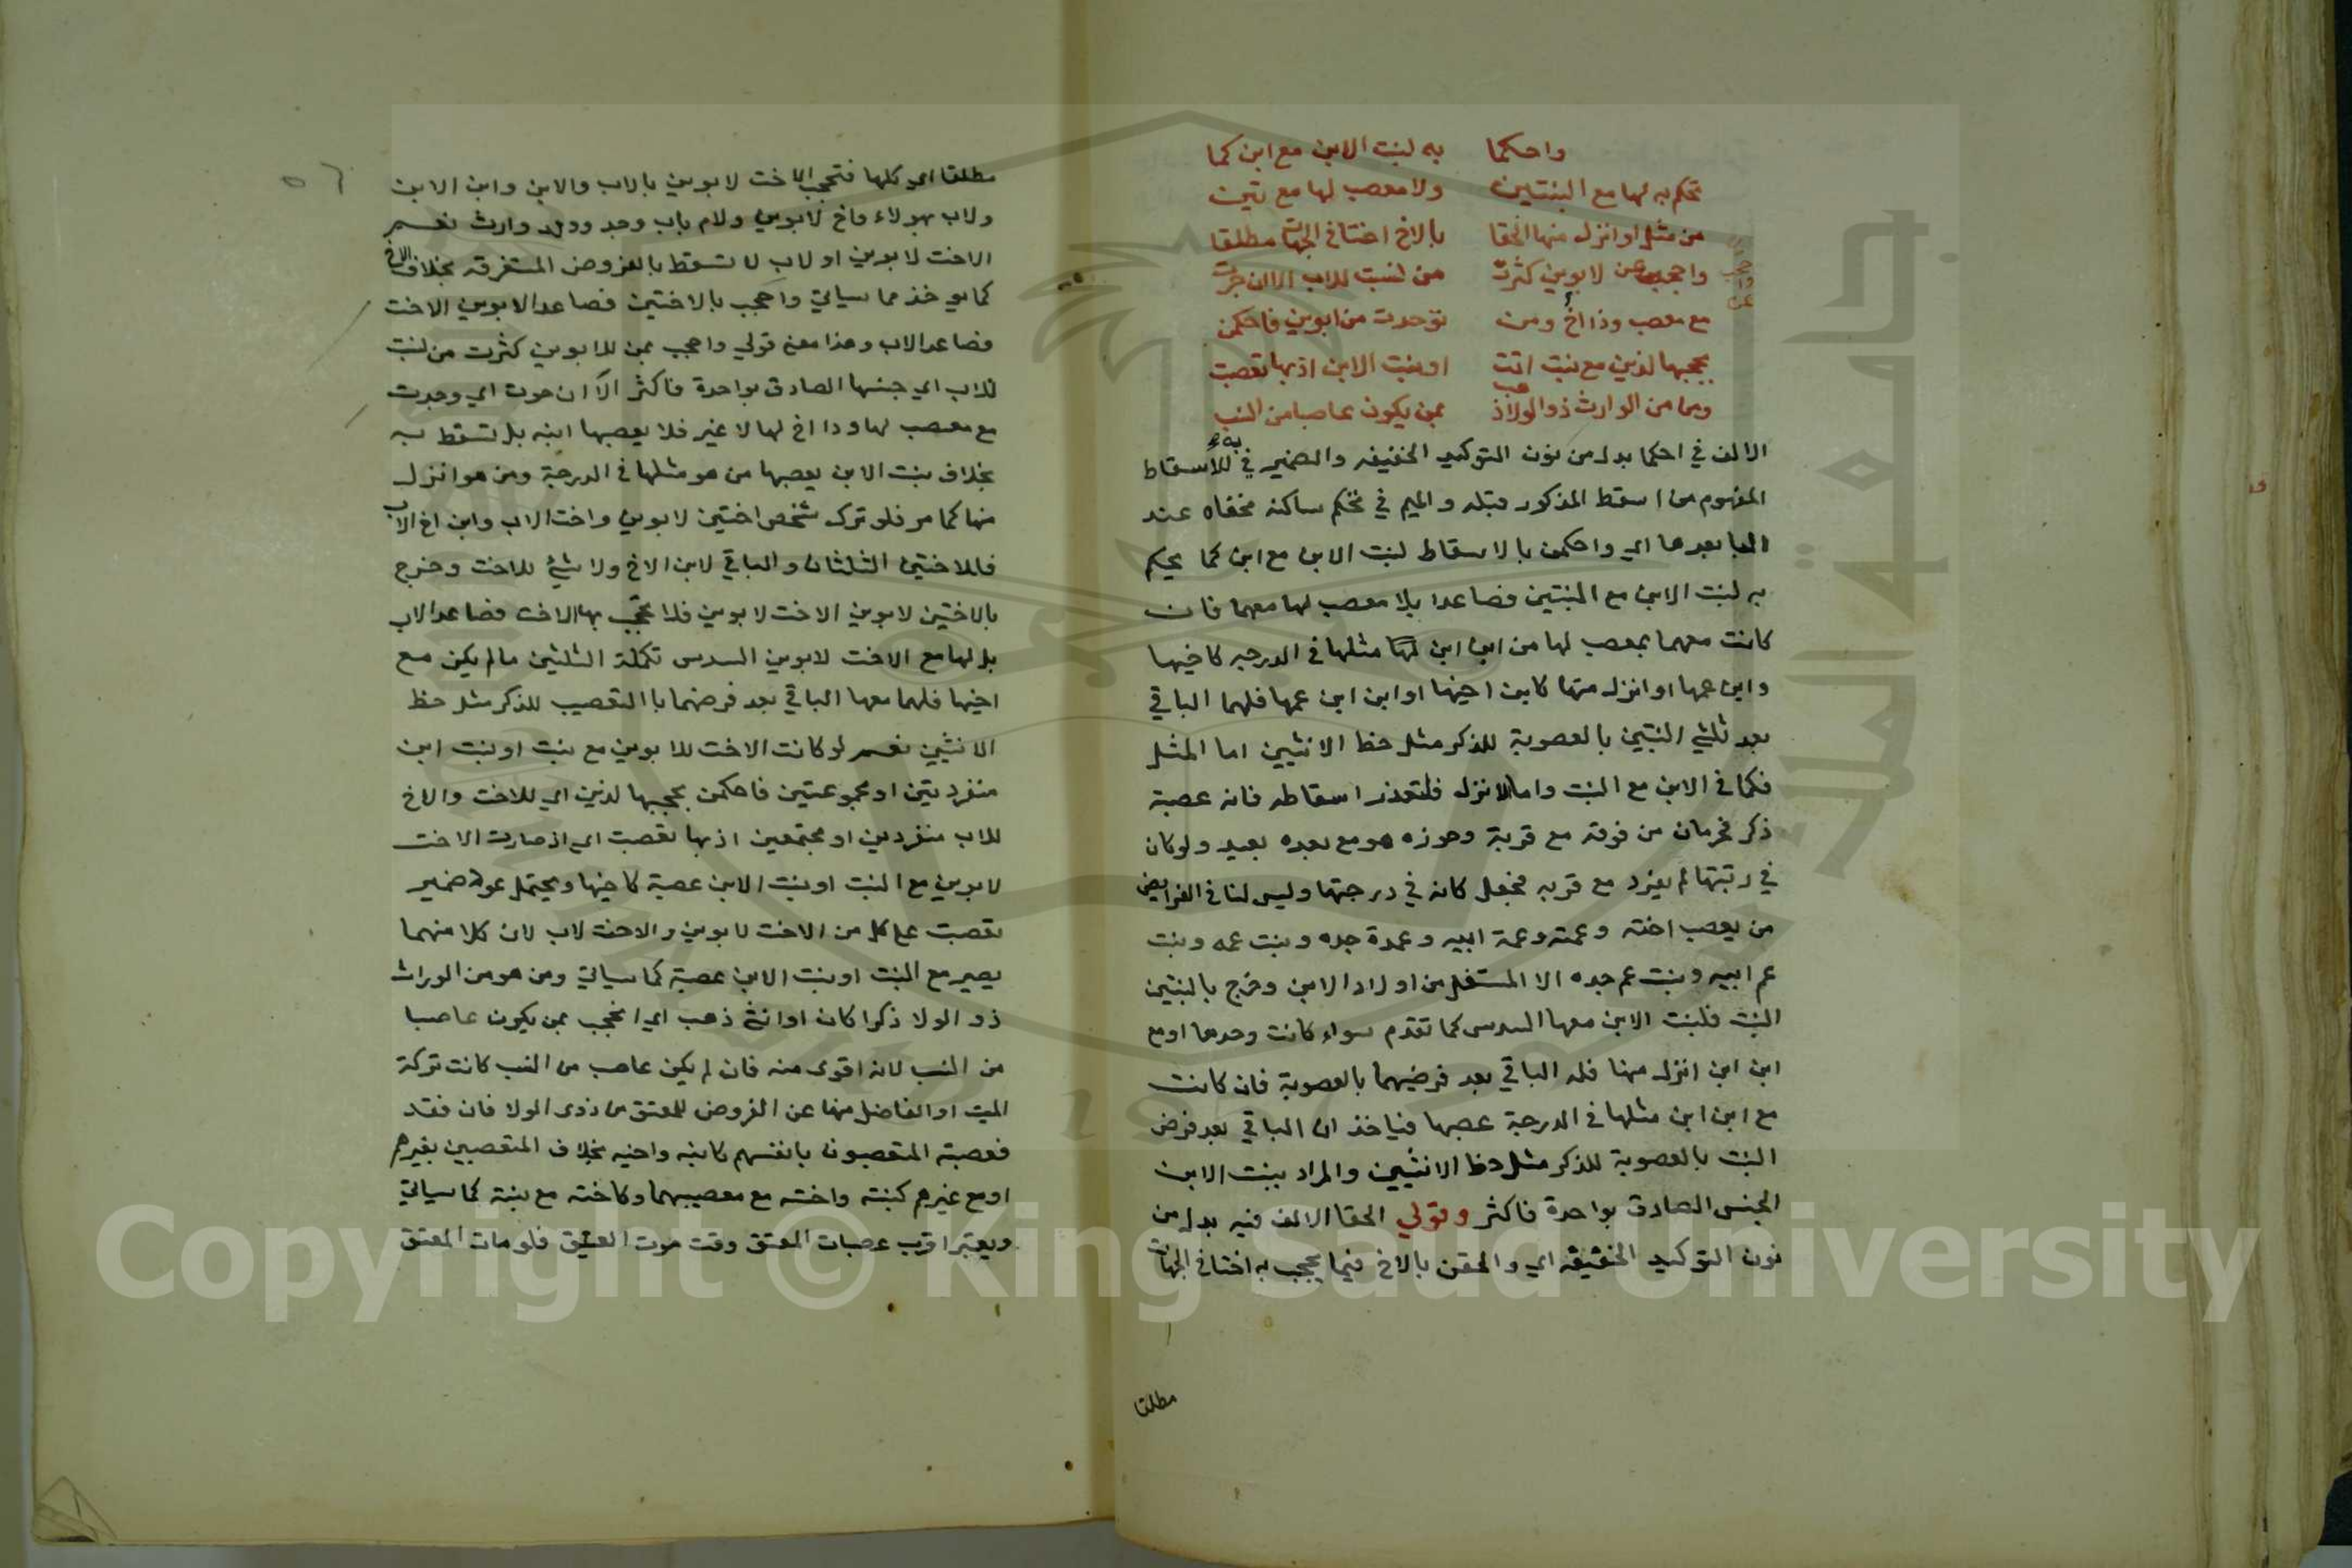 واحكما به لبنت الابن مع ابن كما
تحكم به لها مع البنتين ولا معصب لها مع تين
من مثل او انزل منها الحقا بالاخ اختا في الجهات مطلقا
واحجب بمن لابوين كثرت من لنسب للاب الا ان حوت
مع معصب وذا اخ ومن توحدت من ابوين فاحكمن
بحجبها لذين مع بنت اتت او بنت الابن اذ بها تعصبت
وما من الوارث ذو الولا ذهب بمن يكون عاصبا من النسب
الالف في احكما بدل من نون التوكيد الخفيفه والضمير في به للاسقاط
المفهوم من اسقط المذكور قبله والميم في تحكم ساكنه مخفاه عند
البا بعدها اي واحكمن بالاسقاط لبنت الابن مع ابن كما يحكم
به لبنت الابن مع البنتين فصاعدا بلا معصب لها معهما فان
كانت معهما بمعصب لها من ابن ابن مثلها في الدرجه كاخيها
وابن عمها او انزل منها كابن اخيها او ابن ابن عمها فلهما الباقي
بعد ثلثي البنتين بالعصوبة للذكر مثل حظ الانثيين اما المثل
فكما في الابن مع البنت واما الانزل فلتعذر اسقاطه فانه عصبة
ذكر فحرمان من فوقه مع قربة وحوزه هو مع بعده بعيد ولو كان
في رتبتها لم يفرد مع قربه فجعل كانه في درجتها وليس لنا في الفرايض
من يعصب اخته وعمته وعمة ابيه وعمة جده وبنت عمه وبنت
عم ابيه وبنت عم جده الا المستفل من اولاد الابن وخرج بالبنتين
البنت فلبنت الابن معها السدس كما تقدم سواء كانت وحدها او مع
ابن ابن انزل منها فله الباقي بعد فرضيهما بالعصوبة فان كانت
مع ابن ابن مثلها في الدرجة عصبها فياخذ ان الباقي بعد فرض
البنت بالعصوبة للذكر مثل حظ الانثيين والمراد ببنت الابن
الجنس الصادق بواحدة فاكثر وقولي الحقا الالف فيه بدل من
نون التوكيد الخفيفه اي والحقن بالاخ فيما يحجب به اختا في الجهات
مطلقا
مطلقا اي كلها فتحجب الاخت لابوين بالاب والابن وابن الابن
ولاب بهولاء واخ لابوين ولام باب وجد وولد وارث نعم
الاخت لابوين او لاب لا تسقط بالفروض المستغرقه بخلاف الاخ
كما يوخذ مما سياتي واحجب بالاختين فصاعدا لابوين الاخت
فصاعدا لاب وهذا معنى قولي واحجب بمن للابوين كثرت من لنسب
للاب اي جنسها الصادق بواحدة فاكثر الا ان حوت اي وجدت
مع معصب لها وذا اخ لها لا غير فلا يعصبها ابنه بل تسقط به
بخلاف بنت الابن يعصبها من هو مثلها في الدرجة ومن هو انزل
منها كما مر فلو ترك شخص اختين لابوين واختا لاب وابن اخ لاب
فللاختين الثلثان والباقي لابن الاخ ولا شي للاخت وخرج
بالاختين لابوين الاخت لابوين فلا تحجب بها الاخت فصاعدا لاب
بل لها مع الاخت لابوين السدس تكملة الثلثين ما لم يكن مع
اخيها فلهما معها الباقي بعد فرضهما بالتعصيب للذكر مثل حظ
الانثيين نعم لو كانت الاخت للابوين مع بنت او بنت ابن
منفردتين او مجموعتين فاحكمن بحجبها لذين اي للاخت والاخ
للاب منفردين او مجتمعين اذ بها تعصبت اي اذ صارت الاخت
لابوين مع البنت او بنت الابن عصبة كاخيها ويحتمل عود ضمير
تعصبت على كل من الاخت لابوين والاخت لاب لان كلا منهما
يصير مع البنت او بنت الابن عصبة كما سياتي ومن هو من الوراث
ذو الولا ذكرا كان او انثى ذهب اي انحجب بمن يكون عاصبا
من النسب لانه اقوى منه فان لم يكن عاصب من النسب كانت تركة
الميت او الفاضل منها عن الفروض للمعتق من ذوى الولا فان فقد
فعصبته المتعصبون بانفسهم كابنه واخيه بخلاف المتعصبين بغيرهم
او مع غيرهم كبنته واخته مع معصبيهما وكاخته مع بنته كما سياتي
ويعتبر اقرب عصبات المعتق وقت موت العتيق فلو مات المعتق
Copyright © King Saud University